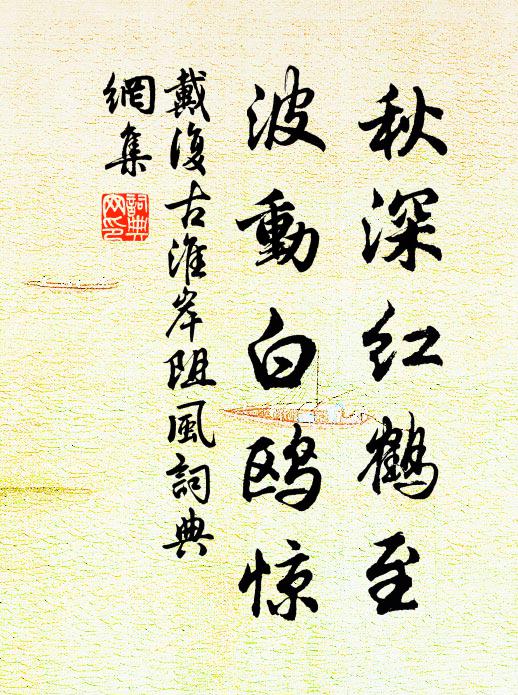 秋深红鹤至
波動白鸥惊
戴復古淮岸阻風詞典
網集
詞典
网印